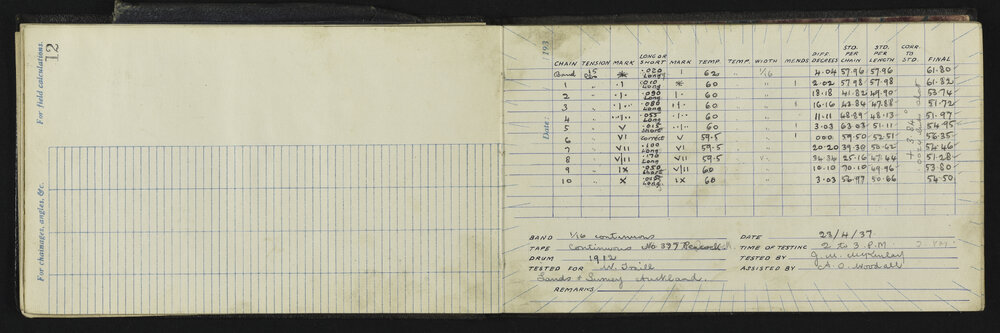 12
For field calculations.
For chainages, angles, &c.
Date: 193
CHAIN TENSION MARK LONG OR SHORT MARK TEMP. TEMP. WIDTH MENDS DIFF. DEGREES STD. PER CHAIN STD. PER LENGTH CORR. TO STD. FINAL
Band 15 Lbs ·020 Long 62 1/16 4·04 57·96 57·96 61·80
1 " ·010 Long 60 " 1 2·02 57·98 57·98 61·82
2 " ·090 Long 60 " 18·18 41·82 49·90 53·74
3 " ·080 Long 60 " 1 16·16 43·84 47·88 51·72
4 " ·055 Long 60 " 11·11 48·89 48·13 51·97
5 " V ·015 Short 60 " 1 3·03 63·03 51·11 54·95
6 " VI Correct V 59·5 " 1 000 59·50 52·51 56·35
7 " VII ·100 Long VI 59·5 " 20·20 39·30 50·62 54·46
8 " VIII ·170 Long VII 59·5 " 34·34 25·16 47·44 51·28
9 " IX ·050 Short VIII 60 " 10·10 70·10 49·96 53·80
10 " X ·015 Long IX 60 " 3·03 56·97 50·66 54·50
+ 3·84
BAND 1/16 continuous DATE 23/4/37
TAPE Continuous No 397 Peacock TIME OF TESTING 2 to 3 P.M.
DRUM 1912 TESTED BY J. M. McKinlay
TESTED FOR W. Traill ASSISTED BY A. O. Woodall
Lands & Survey Auckland.
REMARKS